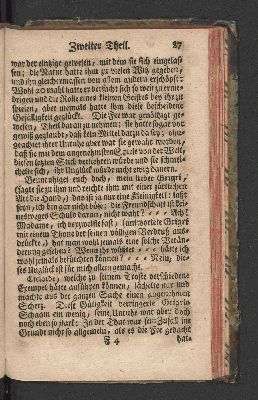 Zweiter Theil. 87
war der einzige gewesen, mit dem sie sich eingelas-
sen; die Natur hatte ihm zu vielen Witz gegeben,
und ihn gleichermassen von allem andern erschöpft:
Wohl 20 mahl hatte er versucht sich so weit zu ernie-
drigen und die Rolle eines kleinen Geistes bey ihr zu
spielen, aber niemals hatte ihm diese bescheidene
Gefälligkeit geglückt. Die Fee war genöthiget ge-
wesen, Theil daran zu nehmen; sie hatte sogar vor
gewiß geglaubt, daß kein Mittel darzu da sey; ohn-
geachtet ihrer Unruhe aber war sie gewahr worden,
daß sie mit dem angenehmsten Spiele von der Welt
diesen letzten Stich verliehren würde und sie schmei-
chelte sich, ihr Unglück würde nicht ewig dauern.
Beunruhiget euch doch, mein lieber Grigri,
(sagte sie zu ihm und reichte ihm mit einer zärtlichen
Art die Hand,) das ist ja nur eine Kleinigkeit; laßt
seyn, ich bin gar nicht böse; die Freundschaft ist kei-
nesweges Schuld daran, nicht wahr? - - - Ach!
Madame, ich bezweifle fast, (antwortete Grigri
mit einem Thone der seinen völligen Verdruß aus-
drückte,) hat man wohl jemals eine solche Verän-
derung gesehen? Wenn ihr wüßtet - - - hätte ich
wohl jemals befürchten können? - - - Nein, die-
ses Unglück ist für mich allein gemacht.
welche zu seinem Troste verschiedene
Exempel hätte anführen können, lächelte nur und
machte aus der ganzen Sache einen angenehmen
Scherz. Diese Gütigkeit verringerte Grigris
Schaam ein wenig, seine Unruhe war aber doch
noch eben so stark: In der That war sein Zufall im
Grunde nicht so allgemein, als es die Fee gedacht
F 4 hat-